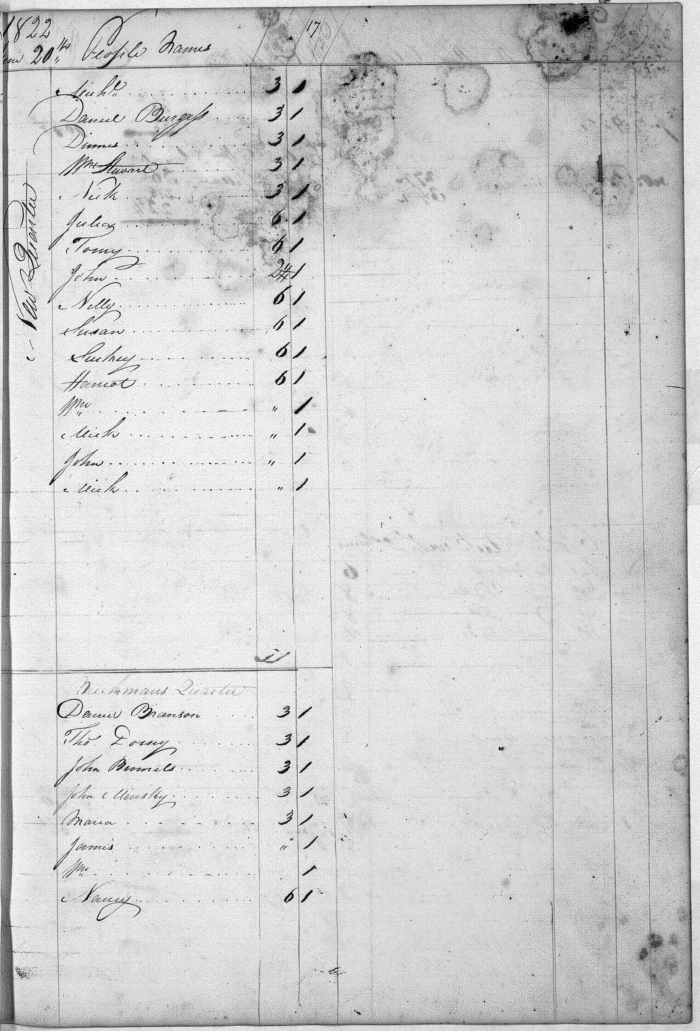 1822
20th People Names
17
New Quarter
Michl 3 1
Daniel Burgess 3 1
Dennis 3 1
Wm Steward 3 1
Nick 3 1
Julia 6 1
Tomy 6 1
John 2¼ 1
Nelly 6 1
Susan 6 1
Suckey 6 1
Harriot 6 1
Wm " 1
Mick " 1
John " 1
Mick " 1
51
Quarter
Daniel Branson 3 1
Thos Dorsey 3 1
John Bunnels 3 1
John Minsky 3 1
Maria 3 1
James " 1
Wm 1
Nancy 6 1